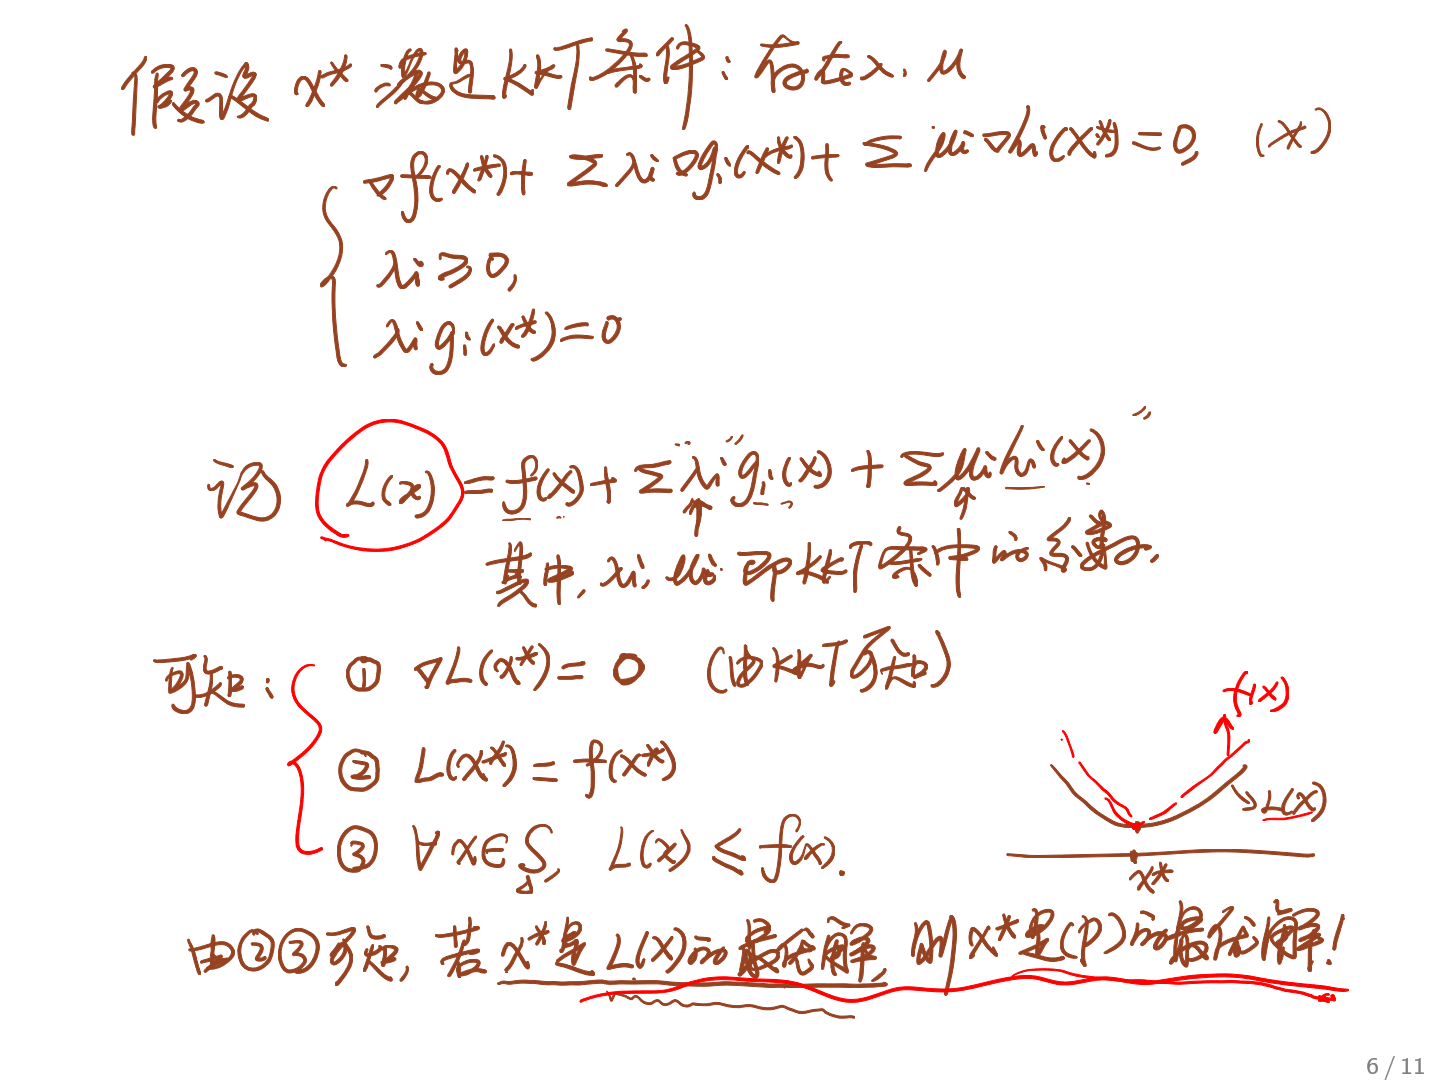 假设 x* 满足KKT条件：存在λ, μ
∇f(x*)+ Σλi∇gi(x*)+ Σμi∇hi(x*)=0, (*)
λi≥0,
λigi(x*)=0
记 L(x)=f(x)+Σλigi(x)+Σμihi(x)
其中, λi, μi 即KKT条中的系数.
可知：① ∇L(x*)=0 (由KKT可知)
② L(x*)=f(x*)
③ ∀x∈S, L(x)≤f(x).
f(x)
L(x)
x*
由②③可知, 若 x*是L(x)的最优解, 则x*是(P)的最优解!
6 / 11